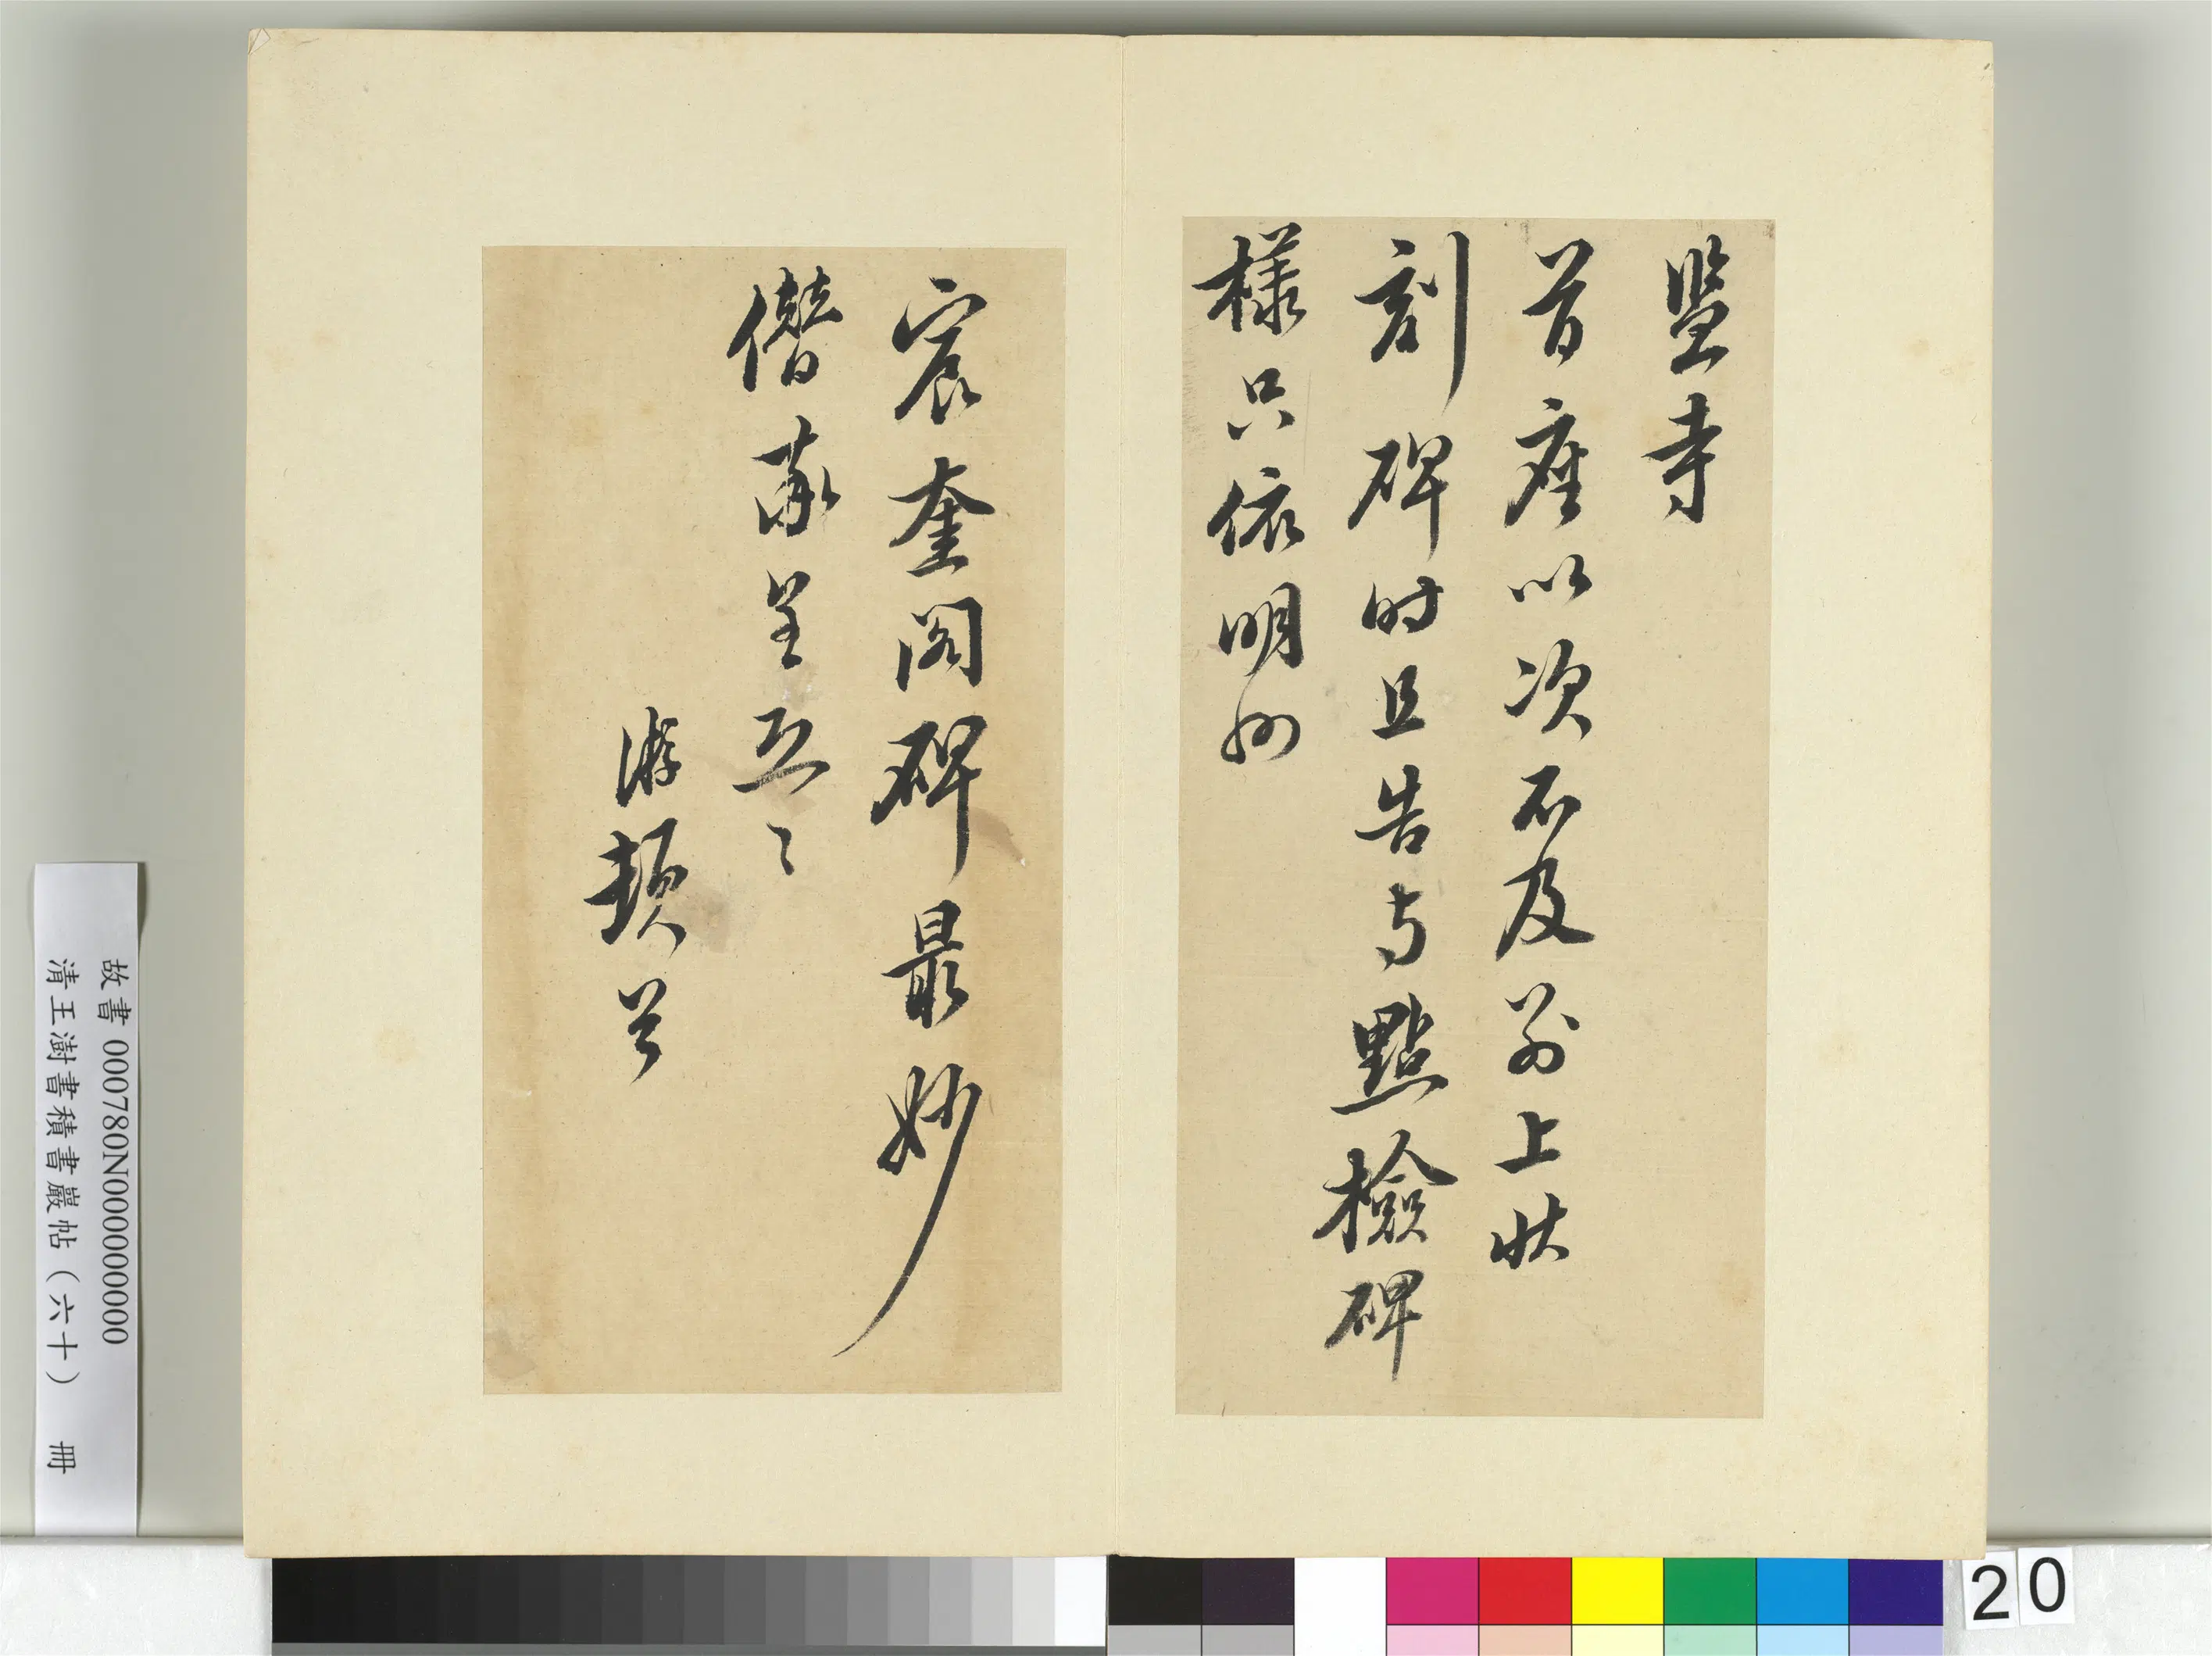 監寺
首座以次不及別上狀
刻碑时且告与點檢碑
樣只依明州
宸奎閣碑最妙
僭率呈丑〻
游頓首
故書 000780N000000000
清王澍書積書巖帖（六十） 冊
20